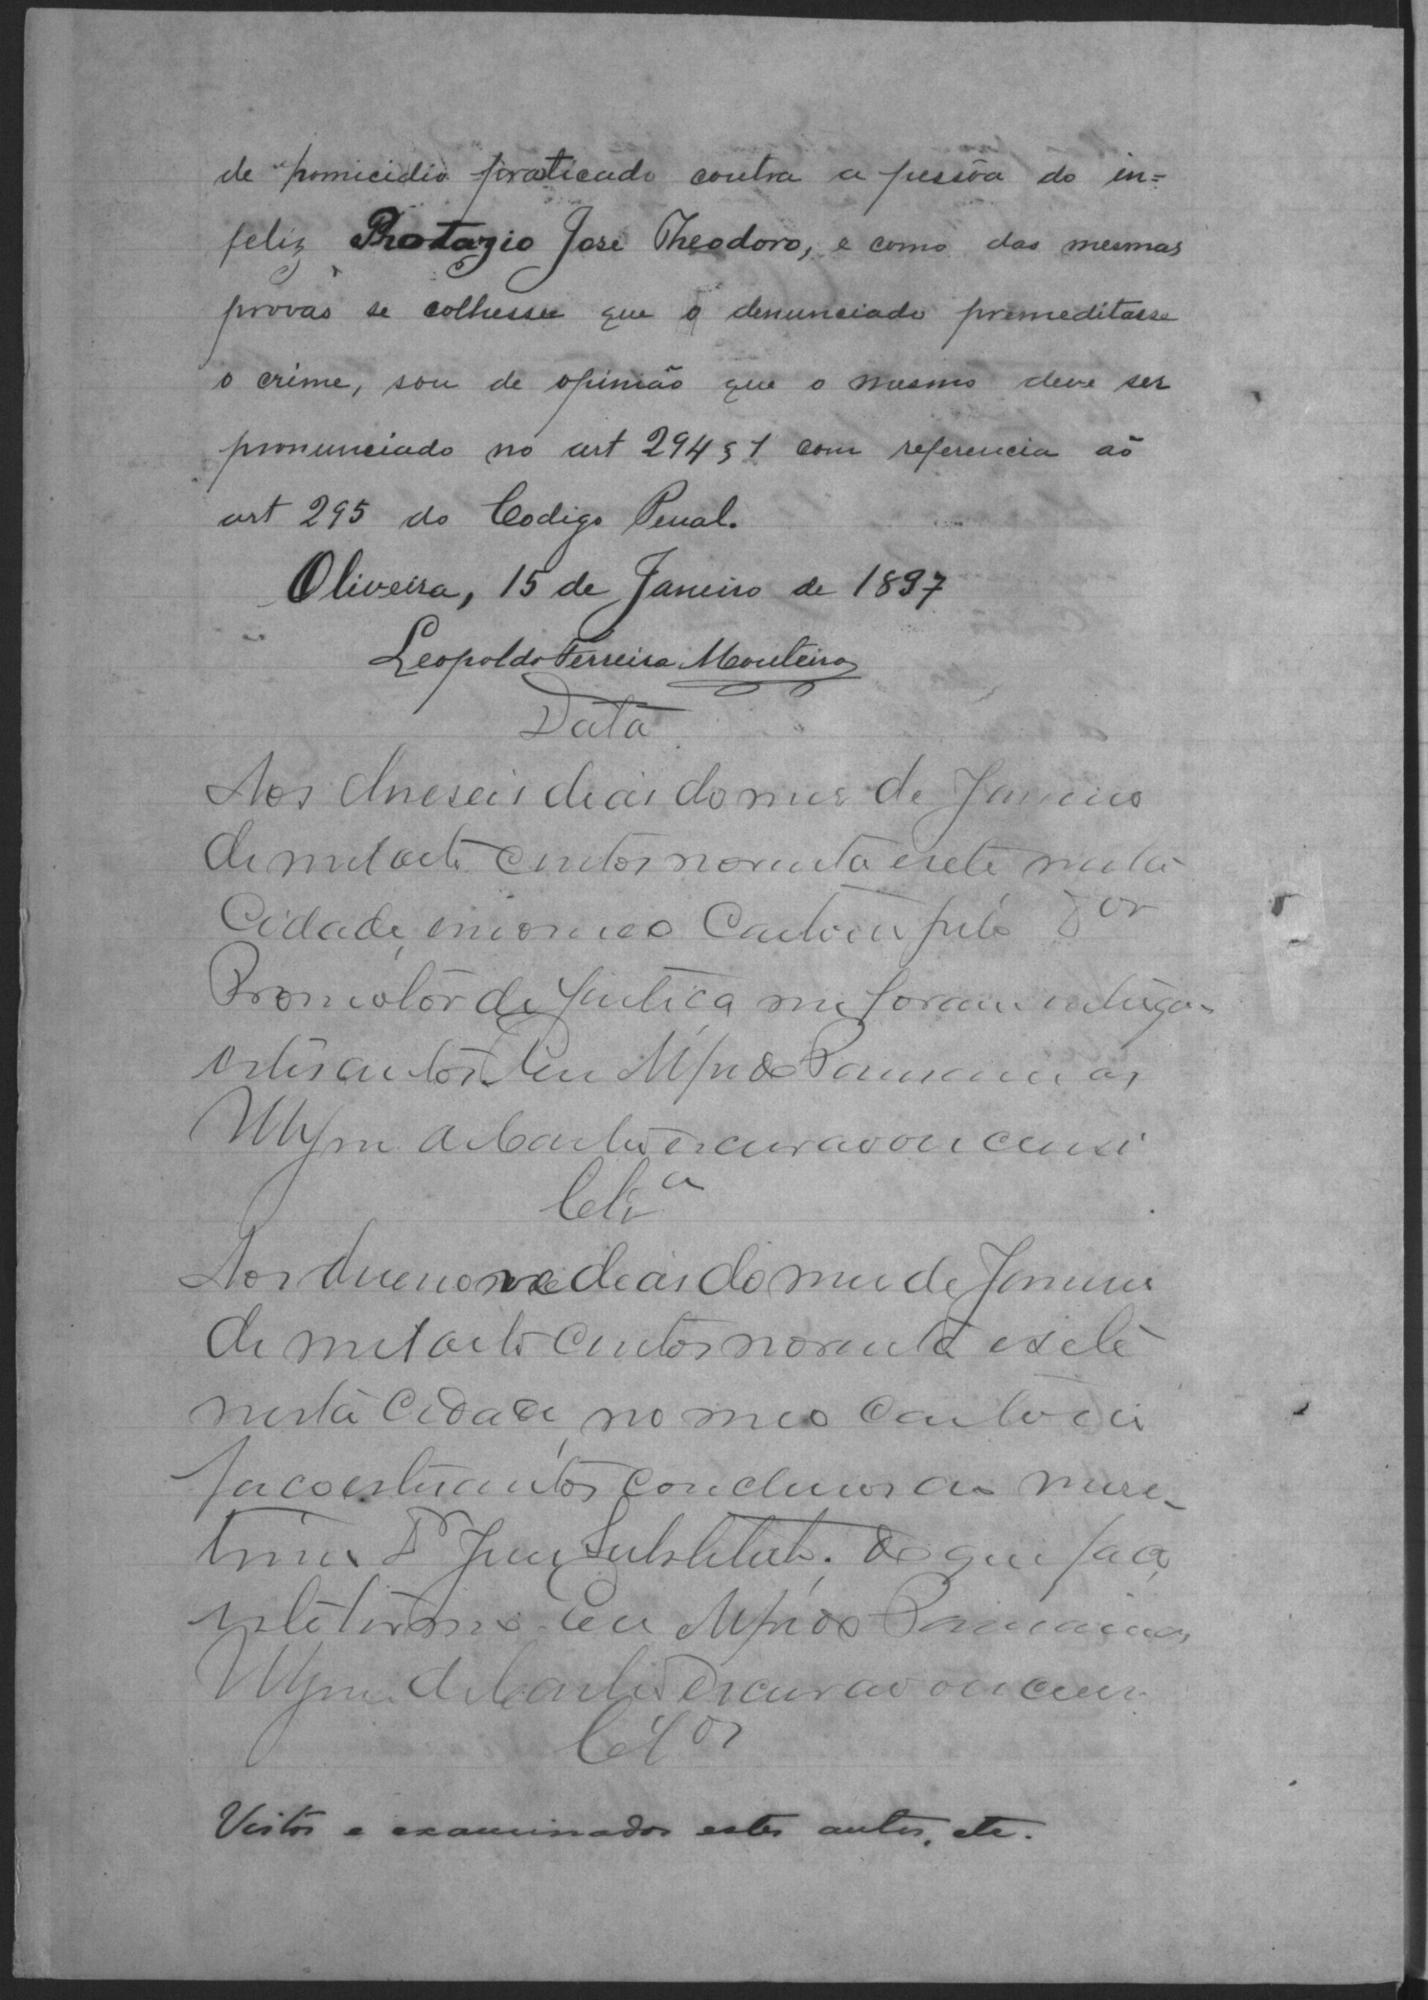 de homicidio praticado contra a pessôa do in=
feliz Protazio José Theodoro, e como das mesmas
provas se colhesse que o denunciado premeditasse
o crime, sou de opinião que o mesmo deve ser
pronunciado no art 294 § 1 com referencia ao
art 295 do Codigo Penal.
Oliveira, 15 de Janeiro de 1897
Leopoldo Ferreira Monteiro
Data
Aos deseseis dias do mes de Janeiro
de mil oito centos noventa e sete nesta
Cidade, em o meo Cartorio pelo Dor
Promotor de Justiça me foram entregues
estes autos. Eu
escrivão o escrevi
Clsa
Aos desenove dias do mes de Janeiro
de mil oito centos noventa e sete
nesta Cidade, no meo Cartorio
faço estes autos conclusos ao mere-
tissimo Dr Juiz Substituto. do que faço
este termo. Eu
escrivão o escrevi
Clsos
Vistos e examinados estes autos, etc.